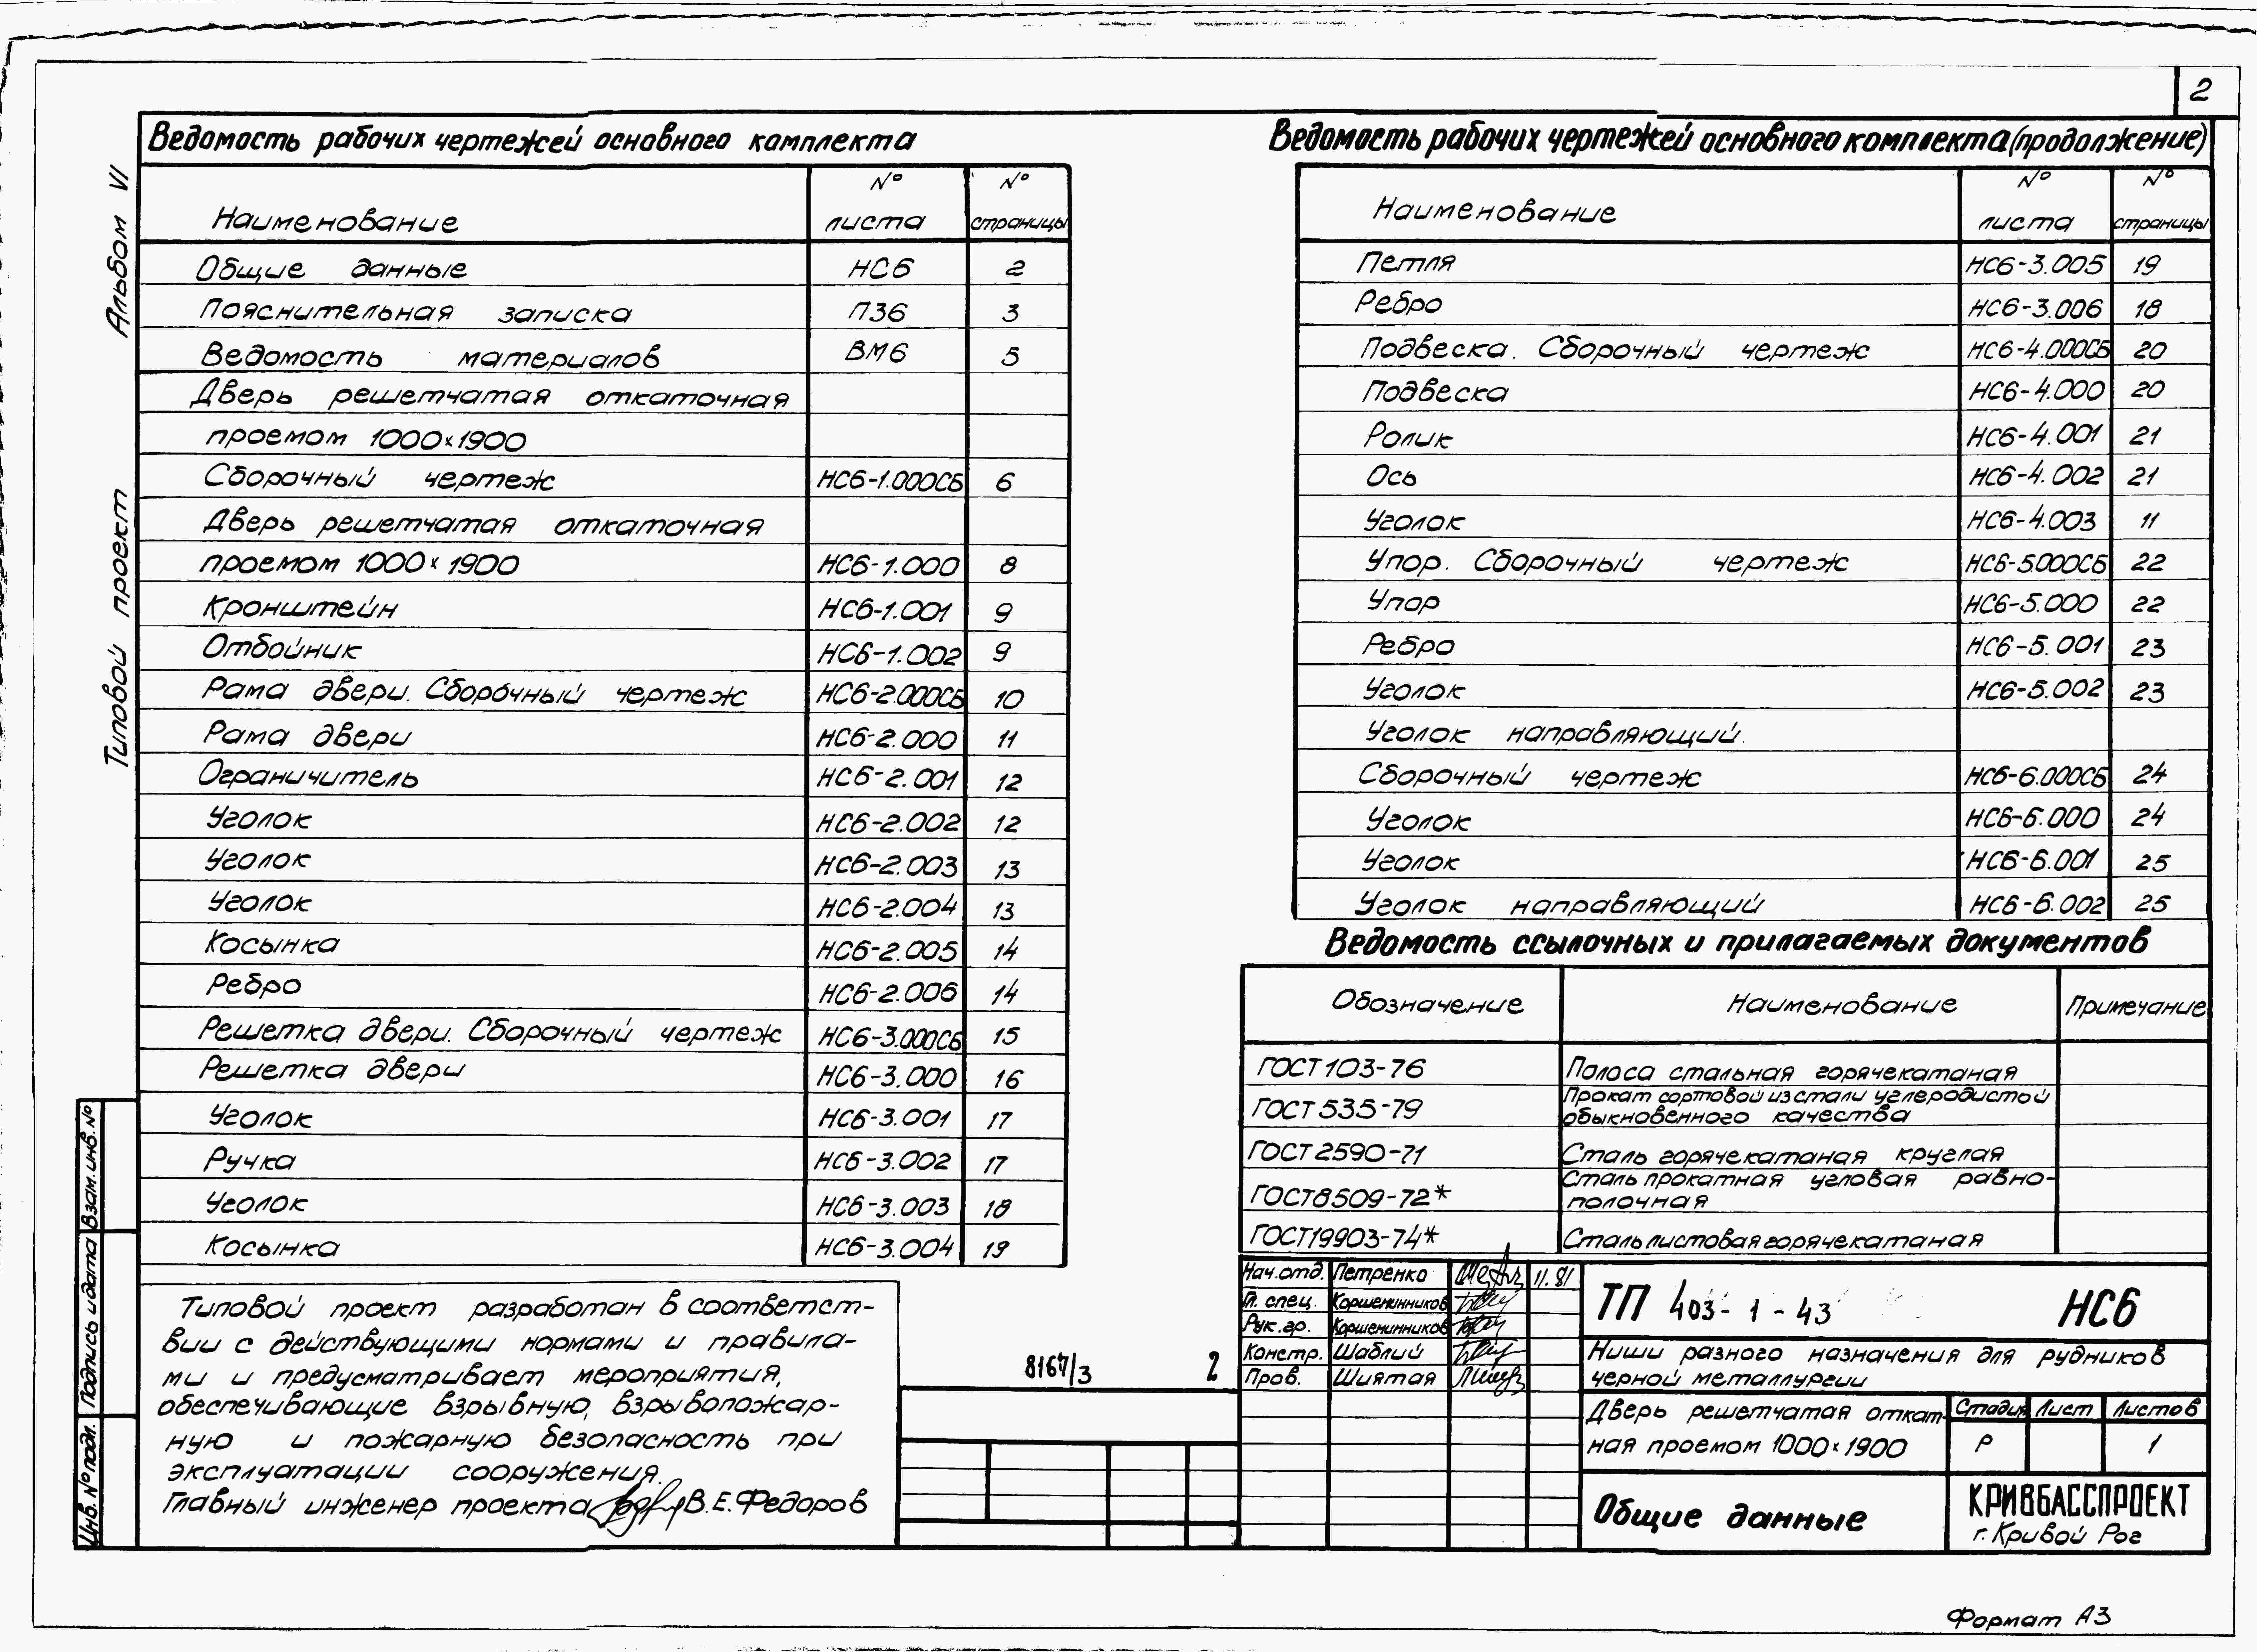 2
Альбом VI
Типовой проект
Ведомость рабочих чертежей основного комплекта
Наименование № листа № страницы
Общие данные НС6 2
Пояснительная записка ПЗ6 3
Ведомость материалов ВМ6 5
Дверь решетчатая откаточная
проемом 1000×1900
Сборочный чертеж НС6-1.000СБ 6
Дверь решетчатая откаточная
проемом 1000×1900 НС6-1.000 8
Кронштейн НС6-1.001 9
Отбойник НС6-1.002 9
Рама двери. Сборочный чертеж НС6-2.000СБ 10
Рама двери НС6-2.000 11
Ограничитель НС6-2.001 12
Уголок НС6-2.002 12
Уголок НС6-2.003 13
Уголок НС6-2.004 13
Косынка НС6-2.005 14
Ребро НС6-2.006 14
Решетка двери. Сборочный чертеж НС6-3.000СБ 15
Решетка двери НС6-3.000 16
Уголок НС6-3.001 17
Ручка НС6-3.002 17
Уголок НС6-3.003 18
Косынка НС6-3.004 19
Ведомость рабочих чертежей основного комплекта (продолжение)
Наименование № листа № страницы
Петля НС6-3.005 19
Ребро НС6-3.006 18
Подвеска. Сборочный чертеж НС6-4.000СБ 20
Подвеска НС6-4.000 20
Ролик НС6-4.001 21
Ось НС6-4.002 21
Уголок НС6-4.003 11
Упор. Сборочный чертеж НС6-5.000СБ 22
Упор НС6-5.000 22
Ребро НС6-5.001 23
Уголок НС6-5.002 23
Уголок направляющий.
Сборочный чертеж НС6-6.000СБ 24
Уголок НС6-6.000 24
Уголок НС6-6.001 25
Уголок направляющий НС6-6.002 25
Ведомость ссылочных и прилагаемых документов
Обозначение Наименование Примечание
ГОСТ 103-76 Полоса стальная горячекатаная
ГОСТ 535-79 Прокат сортовой из стали углеродистой
обыкновенного качества
ГОСТ 2590-71 Сталь горячекатаная круглая
ГОСТ 8509-72* Сталь прокатная угловая равно-
полочная
ГОСТ 19903-74* Сталь листовая горячекатаная
Типовой проект разработан в соответст-
вии с действующими нормами и правила-
ми и предусматривает мероприятия,
обеспечивающие взрывную, взрывопожар-
ную и пожарную безопасность при
эксплуатации сооружения.
Главный инженер проекта В.Е.Федоров
8167/3 2
Нач.отд. Петренко 11.81
Гл. спец. Коршенинников
Рук.гр. Коршенинников
Констр. Шаблий
Пров. Шиятая
ТП 403-1-43 НС6
Ниши разного назначения для рудников
черной металлургии
Дверь решетчатая откат-
ная проемом 1000×1900
Стадия Лист Листов
Р 1
Общие данные
КРИВБАССПРОЕКТ
г. Кривой Рог
Инв. № подл. Подпись и дата Взам. инв. №
Формат А3